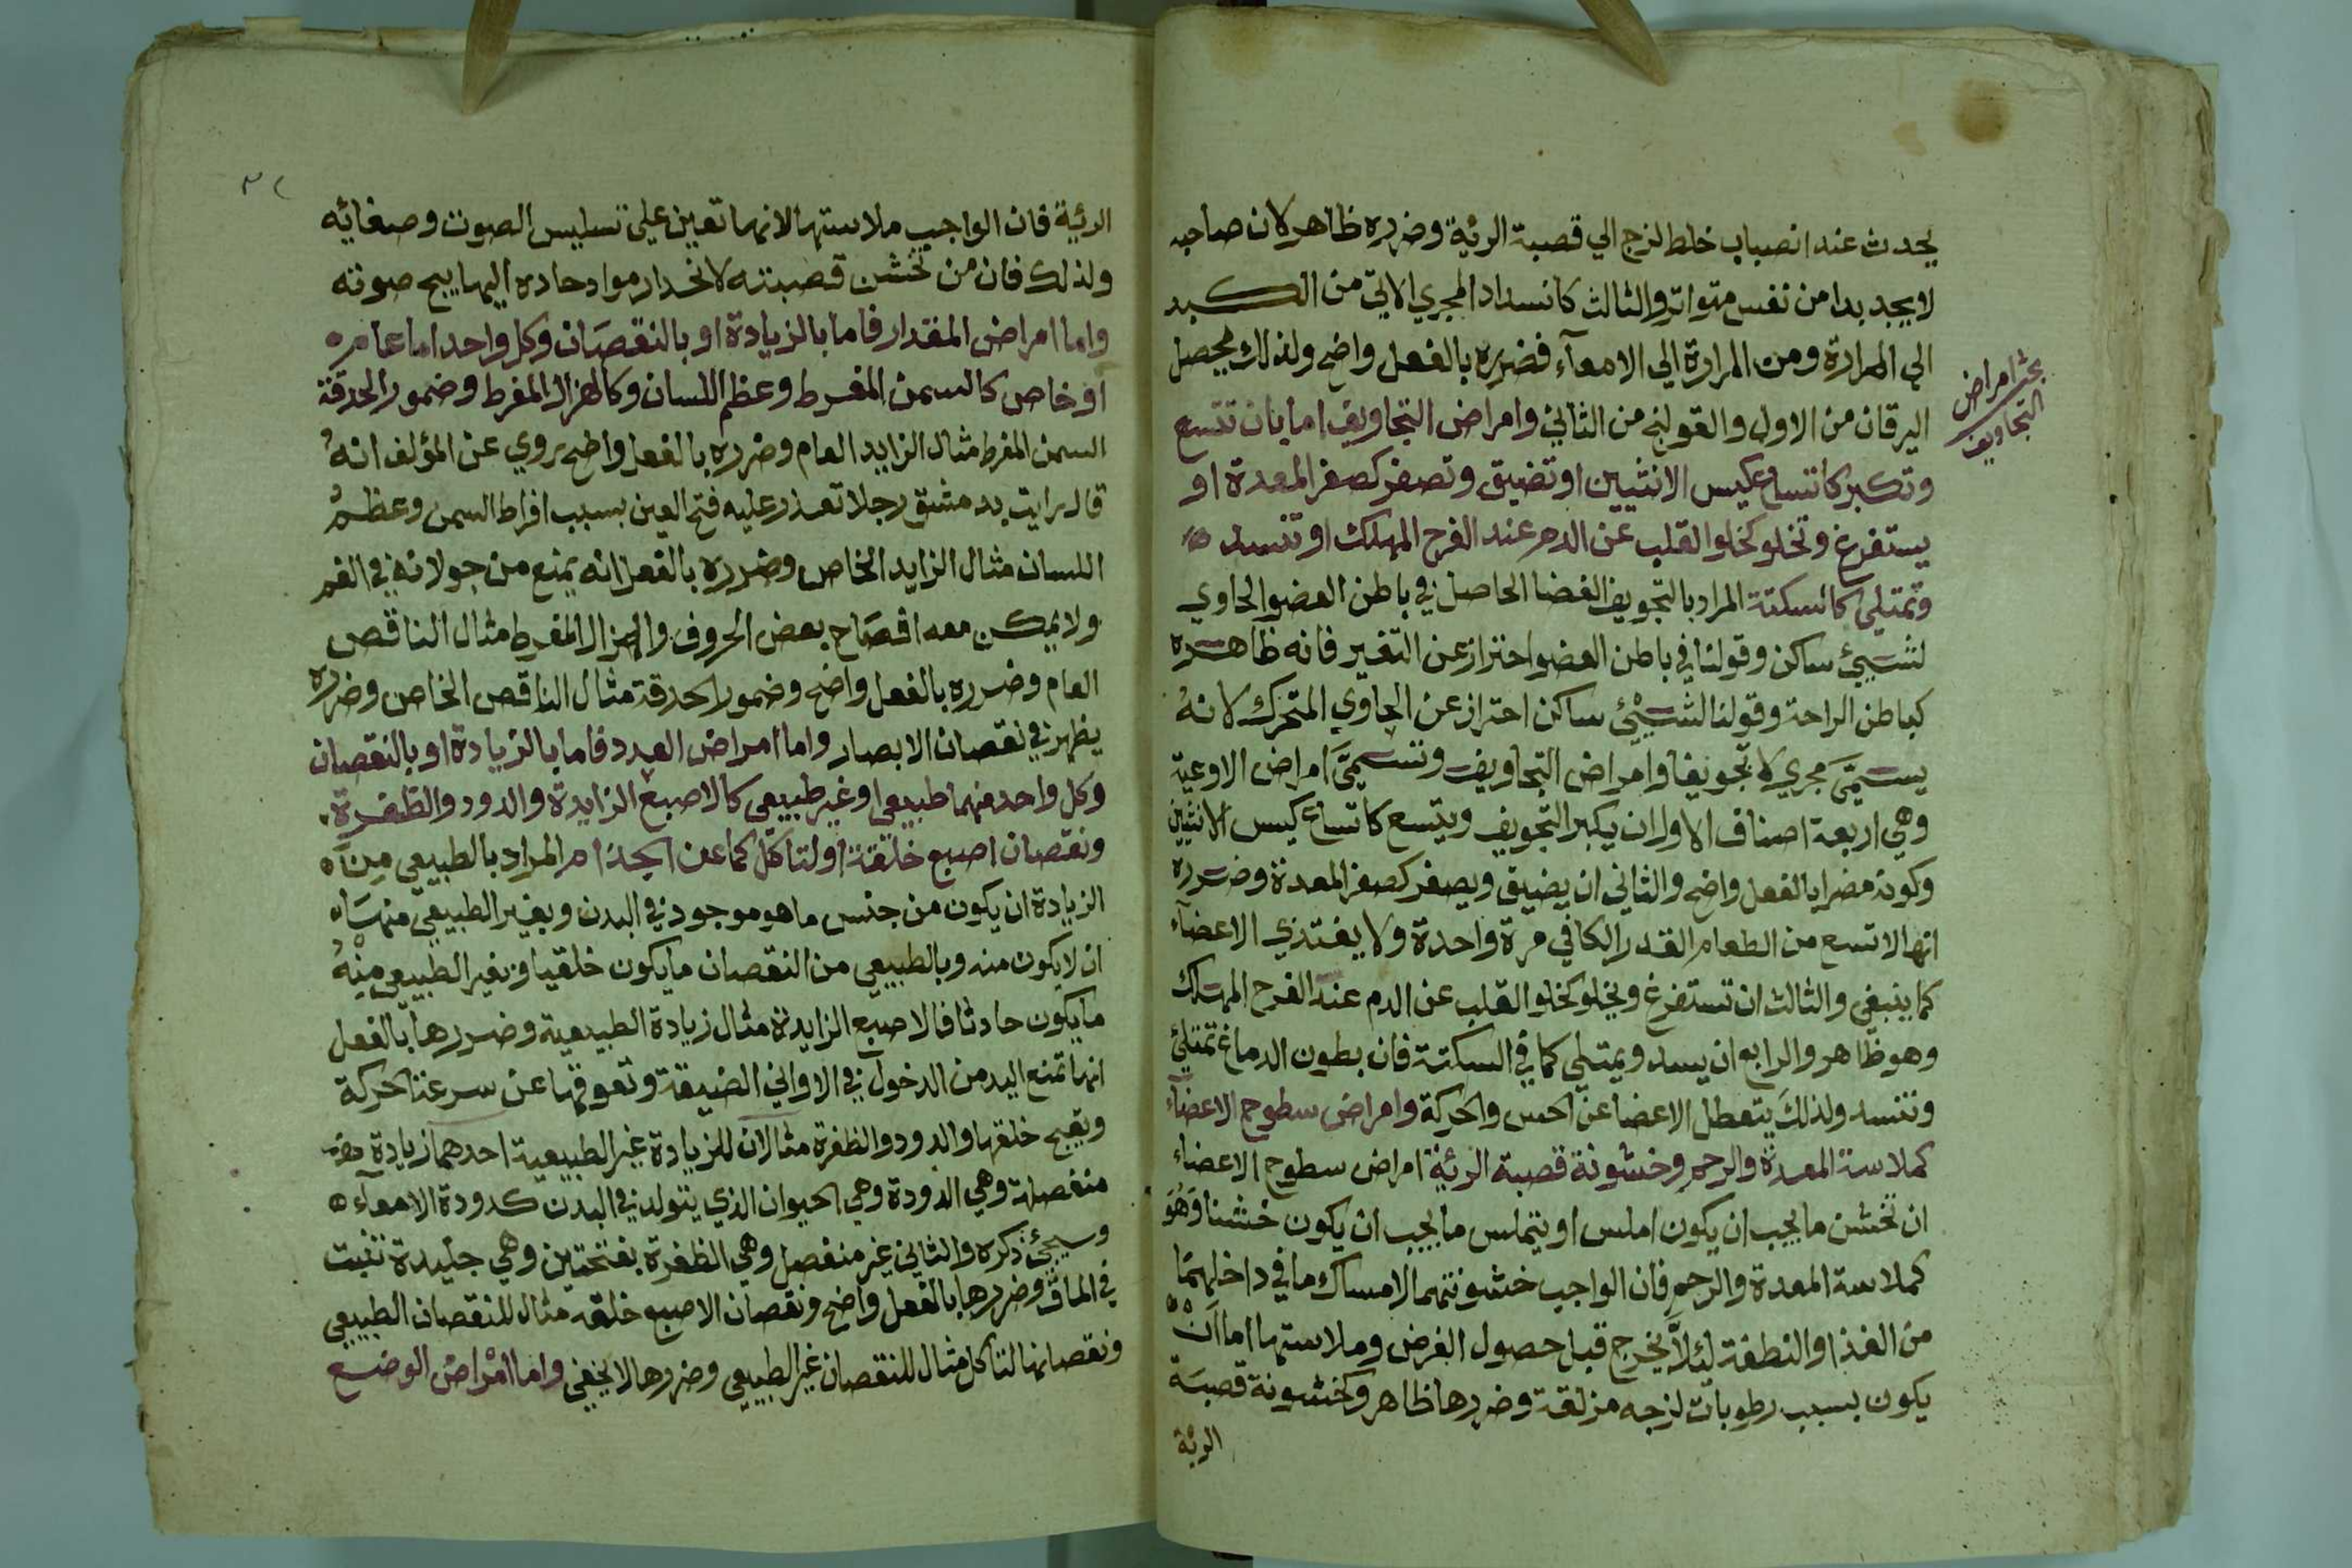 يحدث عند انصباب خلط لزج الي قصبة الرئة وضرره ظاهر لان صاحبه
لا يجد بدا من نفس متواتر والثالث كانسداد المجري الاتي من الكبد
الي المرارة ومن المرارة الي الامعآء فضرره بالفعل واضح ولذلك يحصل
اليرقان من الاول والقولنج من الثاني وامراض التجاويف اما بان تتسع
بحث امراض
التجاويف
وتكبر كاتساع كيس الانثيين او تضيق وتصغر كصغر المعدة او
يستفرغ وتخلو كخلو القلب عن الدم عند الفرح المهلك او تنسد
وتمتلي كالسكتة المراد بالتجويف الفضا الحاصل في باطن العضو الحاوي
لشيئ ساكن وقولنا في باطن العضو احتراز عن التقعير فانه ظاهره
كباطن الراحة وقولنا لشيئ ساكن احتراز عن الحاوي المتحرك لانهُ
يسمَّي مجري لا تجويفا وامراض التجاويف وتسميَّ امراض الاوعية
وهي اربعة اصناف الاول ان يكبر التجويف ويتسع كاتساع كيس الانثيين
وكونه مضرا بالفعل واضح والثاني ان يضيق ويصغر كصغر المعدة وضرره
انها لا تسع من الطعام القدر الكافي مرة واحدة ولا يغتذي الاعضآء
كما ينبغي والثالث ان تستفرغ ويخلو كخلو القلب عن الدم عند الفرح المهلك
وهو ظاهر والرابع ان يسد ويمتلي كما في السكتة فان بطون الدماغ تمتلئ
وتنسد ولذلك يتعطل الاعضا عن الحس والحركة وامراض سطوح الاعضآء
كملاسة المعدة والرحم وخشونة قصبة الرئة امراض سطوح الاعضاء
ان تخشن ما يجب ان يكون املس او يتملس ما يجب ان يكون خشنا وَهُوَ
كملاسة المعدة والرحم فان الواجب خشونتهما لامساك ما في داخلهما
من الغذا والنطفة لئلاَّ يخرج قبل حصول الغرض وملاستها اما اَنْ
يكون بسبب رطوبات لزجه مزلقة وضررها ظاهر وكخشونة قصبَة
الرئة
الرئية فان الواجب ملاستها لانها تعين علي تسليس الصوت وصفائه
ولذلك فان من تخشن قصبته لانحدار مواد حاده اليها يبح صوته
واما امراض المقدار فاما بالزيادة او بالنقصَان وكل واحد اما عام
او خاص كالسمن المفرط وعظم اللسان وكالهزال المفرط وضمور الحدقة
السمن المفرط مثال الزايد العام وضرره بالفعل واضح روي عن المؤلف انهُ
قال رايت بدمشق رجلا تعذر عليه فتح العين بسبب افراط السمن وعظمُ
اللسان مثال الزايد الخاص وضرره بالفعل انه يمنع من جولانه في الفم
ولا يمكن معه افصاح بعض الحروف والهزال المفرط مثال الناقص
العام وضرره بالفعل واضح وضمور الحدقة مثال الناقص الخاص وضرره
يظهر في نقصان الابصار واما امراض العدد فاما بالزيادة او بالنقصان
وكل واحد منهما طبيعي او غير طبيعي كالاصبع الزايدة والدود والظفرة
ونقصان اصبع خلقة او لتاكل كما عن الجذام المراد بالطبيعي مِنَ
الزيادة ان يكون من جنس ما هو موجود في البدن وبغير الطبيعي منهَا
ان لا يكون منه وبالطبيعي من النقصان ما يكون خلقيا وبغير الطبيعي مِنْهُ
ما يكون حادثا فالاصبع الزايدة مثال زيادة الطبيعية وضررها بالفعل
انها تمنع اليد من الدخول في الاواني الضيقة وتعوقها عن سرعة الحركة
ويقبح خلقها والدود والظفرة مثالان للزيادة غير الطبيعية احدهما زيادة
منفصلة وهي الدودة وهي الحيوان الذي يتولد في البدن كدودة الامعآء
وسيجئ ذكره والثاني غير منفصل وهي الظفرة بفتحتين وهي جليدة تنبت
في الماق وضررها بالفعل واضح ونقصان الاصبع خلقه مثال للنقصان الطبيعي
ونقصانها لتاكل مثال للنقصان غير الطبيعي وضررها لا يخفي واما امْراضُ الوضع